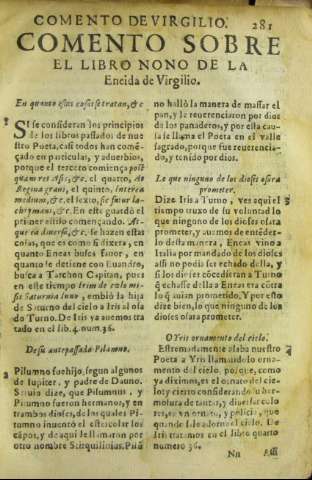 COMENTO DE VIRGILIO. 281
COMENTO SOBRE
EL LIBRO NONO DE LA
Eneida de Virgilio.
En quanto estas cosas se tratan, &c.
SI se consideran los principios
de los libros passados de nue
stro Poeta, casi todos han come
çado en particulas, y aduerbios,
porque el tercero comiença post
quam res Asie, &c. el quarto, At
Regina graui, el quinto, interea
medium, & c. el sexto, sic fatur la-
chrymans, &c. En este guardò el
primer estilo començando. At-
que ea diuersa, &c. se hazen estas
cosas, que es como si dixera, en
quanto Eneas busca fauor, en
quanto se detiene con Euandro,
busca a Tarchon Capitan, pues
en este tiempo Irim de cælo mi-
sit Saturnia Iuno, embiò la hija
de Saturno del cielo a Iris al osa
do Turno. De Iris ya auemos tra
tado en el lib. 4. num. 36.
De su antepassado Pilumno.
Pilumno fue hijo, segun algunos
de Iupiter, y padre de Dauno.
Seruio dize, que Pilumnus, y
Pitumno fueron hermanos, y en
trambos dioses, de los quales Pi-
tumno inuentò el estercolar los
cãpos, y de aqui le llamaron por
otro nombre Sterquilinius. Pilũ
no hallò la manera de massar el
pan, y le reuerenciaron por dios
de los panaderos, y por esta cau-
sa le llama el Poeta en el valle
sagrado, porque fue reuerencia-
do, y tenido por dios.
Le que ninguno de los dioses osara
prometer.
Dize Iris a Turno, ves aqui el
tiempo truxo de su voluntad lo
que ninguno de los dioses osara
prometer, y auemos de entẽder-
lo desta manera, Eneas vino a
Italia por mandado de los dioses
assi no podia ser echado della, y
si los dioses cõcedieran a Turno
q̃ echasse della a Eneas era cõtra
lo q̃ auian prometido, Y por esto
dize bien, lo que ninguno de los
dioses osara prometer.
O Yris ornamento del cielo.
Estremadamente alaba nuestro
Poeta a Yris llamandolo orna-
mento del cielo, porque, como
ya diximos, es el ornato del cie-
lo: y cierto considerando su her-
mosura de tantas, y diuersas colo
res, es vn ornato, y policia, que
quando se vee adorna el cielo. De
Iris tratamos en el libro quarto
numero 36.
Nn